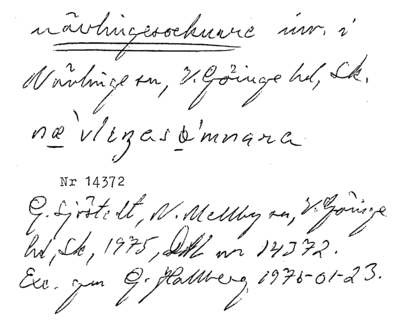 nävlingesocknare inv. i
Nävlinge sn, V. Göinge hd, Sk.
næ`vlingas
Nr 14372
G. Sjöstedt, N. Mellby sn, V. Göinge
hd, Sk, 1975, DAL nr 14372.
Exc. gm G. Hallberg 1976-01-23.